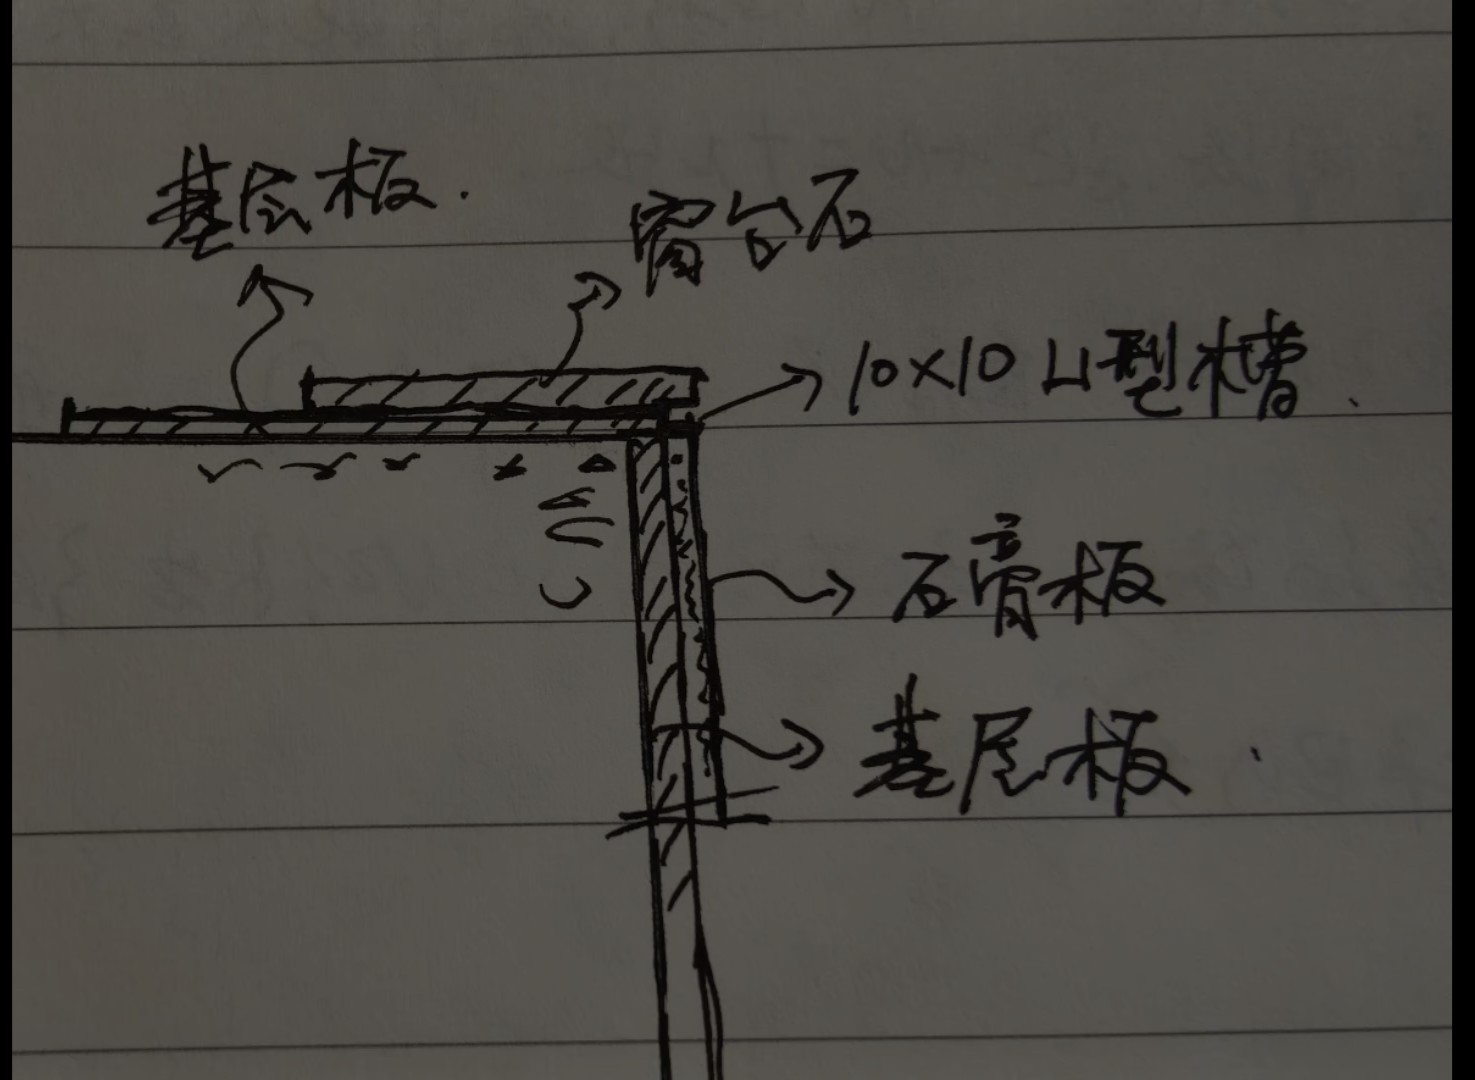 基层板.
窗台石
10×10 凵型槽.
石膏板
基层板.